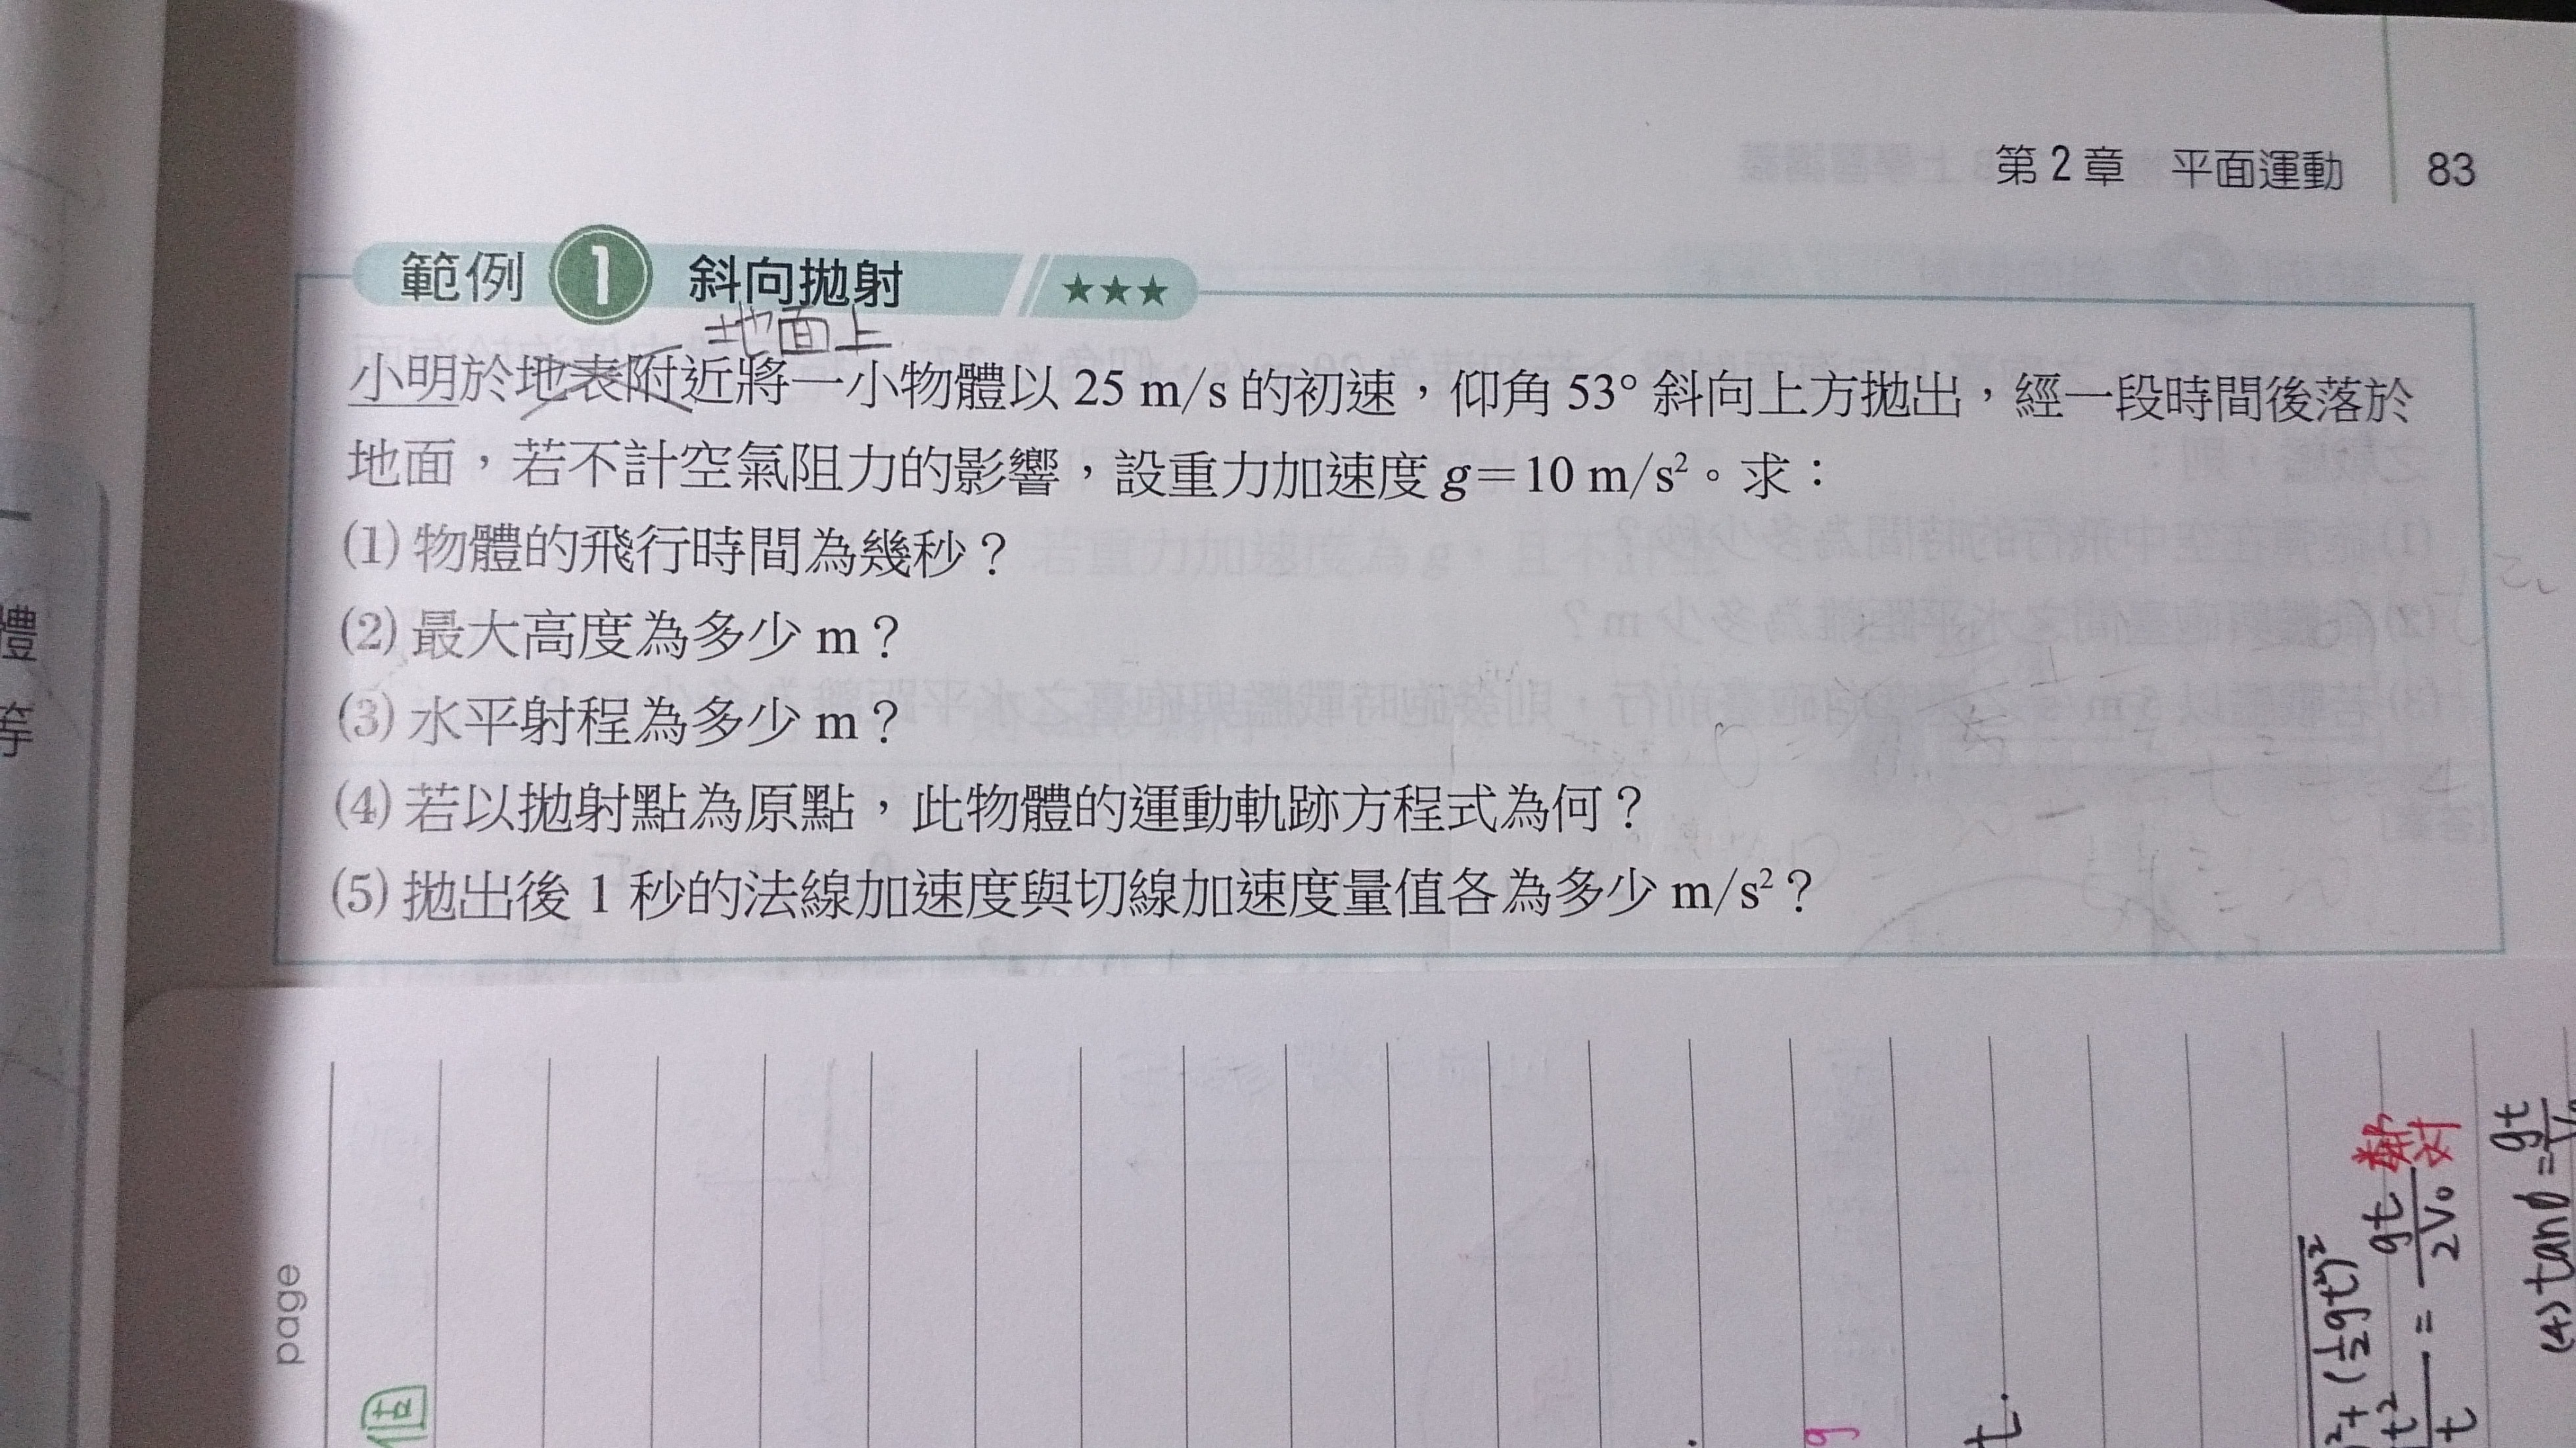 第2章 平面運動 83
範例 1 斜向拋射 ★★★
地面上
小明於地表附近將一小物體以 25 m/s 的初速，仰角 53° 斜向上方拋出，經一段時間後落於
地面，若不計空氣阻力的影響，設重力加速度 g＝10 m/s²。求：
(1) 物體的飛行時間為幾秒？
(2) 最大高度為多少 m？
(3) 水平射程為多少 m？
(4) 若以拋射點為原點，此物體的運動軌跡方程式為何？
(5) 拋出後 1 秒的法線加速度與切線加速度量值各為多少 m/s²？
體
等
page
值
g
t.
²+(½gt²)²
gt
2V₀
(4) tanθ = gt